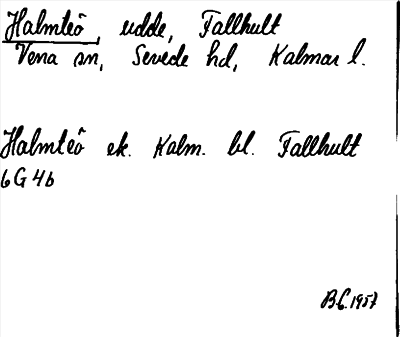 Halmteö, udde, Fallhult
Vena sn, Sevede hd, Kalmar l.
Halmteö ek. Kalm. bl. Fallhult
6G4b
B.C. 1957